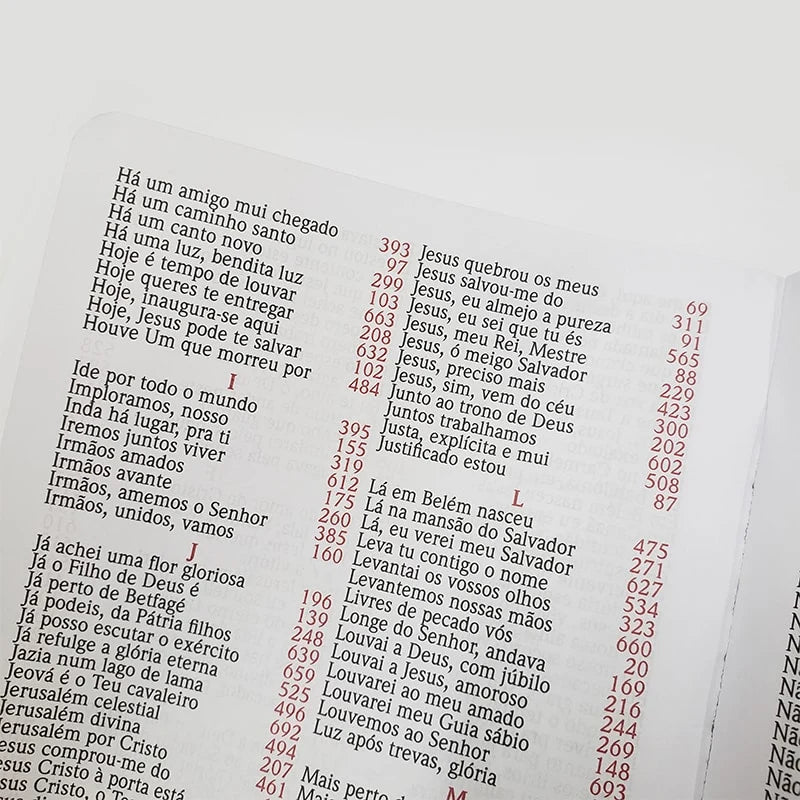 Há um amigo mui chegado 393
Há um caminho santo 97
Há um canto novo 299
Há uma luz, bendita luz 103
Hoje é tempo de louvar 663
Hoje queres te entregar 208
Hoje, inaugura-se aqui 632
Hoje, Jesus pode te salvar 102
Houve Um que morreu por 484
I
Ide por todo o mundo 395
Imploramos, nosso 155
Inda há lugar, pra ti 319
Iremos juntos viver 612
Irmãos amados 175
Irmãos avante 260
Irmãos, amemos o Senhor 385
Irmãos, unidos, vamos 160
J
Já achei uma flor gloriosa 196
Já o Filho de Deus é 139
Já perto de Betfagé 248
Já podeis, da Pátria filhos 639
Já posso escutar o exército 659
Já refulge a glória eterna 525
Jazia num lago de lama 496
Jeová é o Teu cavaleiro 692
Jerusalém celestial 494
Jerusalém divina 207
Jerusalém por Cristo 461
Jesus comprou-me do
Jesus Cristo à porta está
Jesus Cristo, o
Jesus quebrou os meus 69
Jesus salvou-me do 311
Jesus, eu almejo a pureza 91
Jesus, eu sei que tu és 565
Jesus, meu Rei, Mestre 88
Jesus, ó meigo Salvador 229
Jesus, preciso mais 423
Jesus, sim, vem do céu 300
Junto ao trono de Deus 202
Juntos trabalhamos 602
Justa, explícita e mui 508
Justificado estou 87
L
Lá em Belém nasceu 475
Lá na mansão do Salvador 271
Lá, eu verei meu Salvador 627
Leva tu contigo o nome 534
Levantai os vossos olhos 323
Levantemos nossas mãos 660
Livres de pecado vós 20
Longe do Senhor, andava 169
Louvai a Deus, com júbilo 216
Louvai a Jesus, amoroso 244
Louvarei ao meu amado 269
Louvarei meu Guia sábio 148
Louvemos ao Senhor 693
Luz após trevas, glória
M
Mais perto